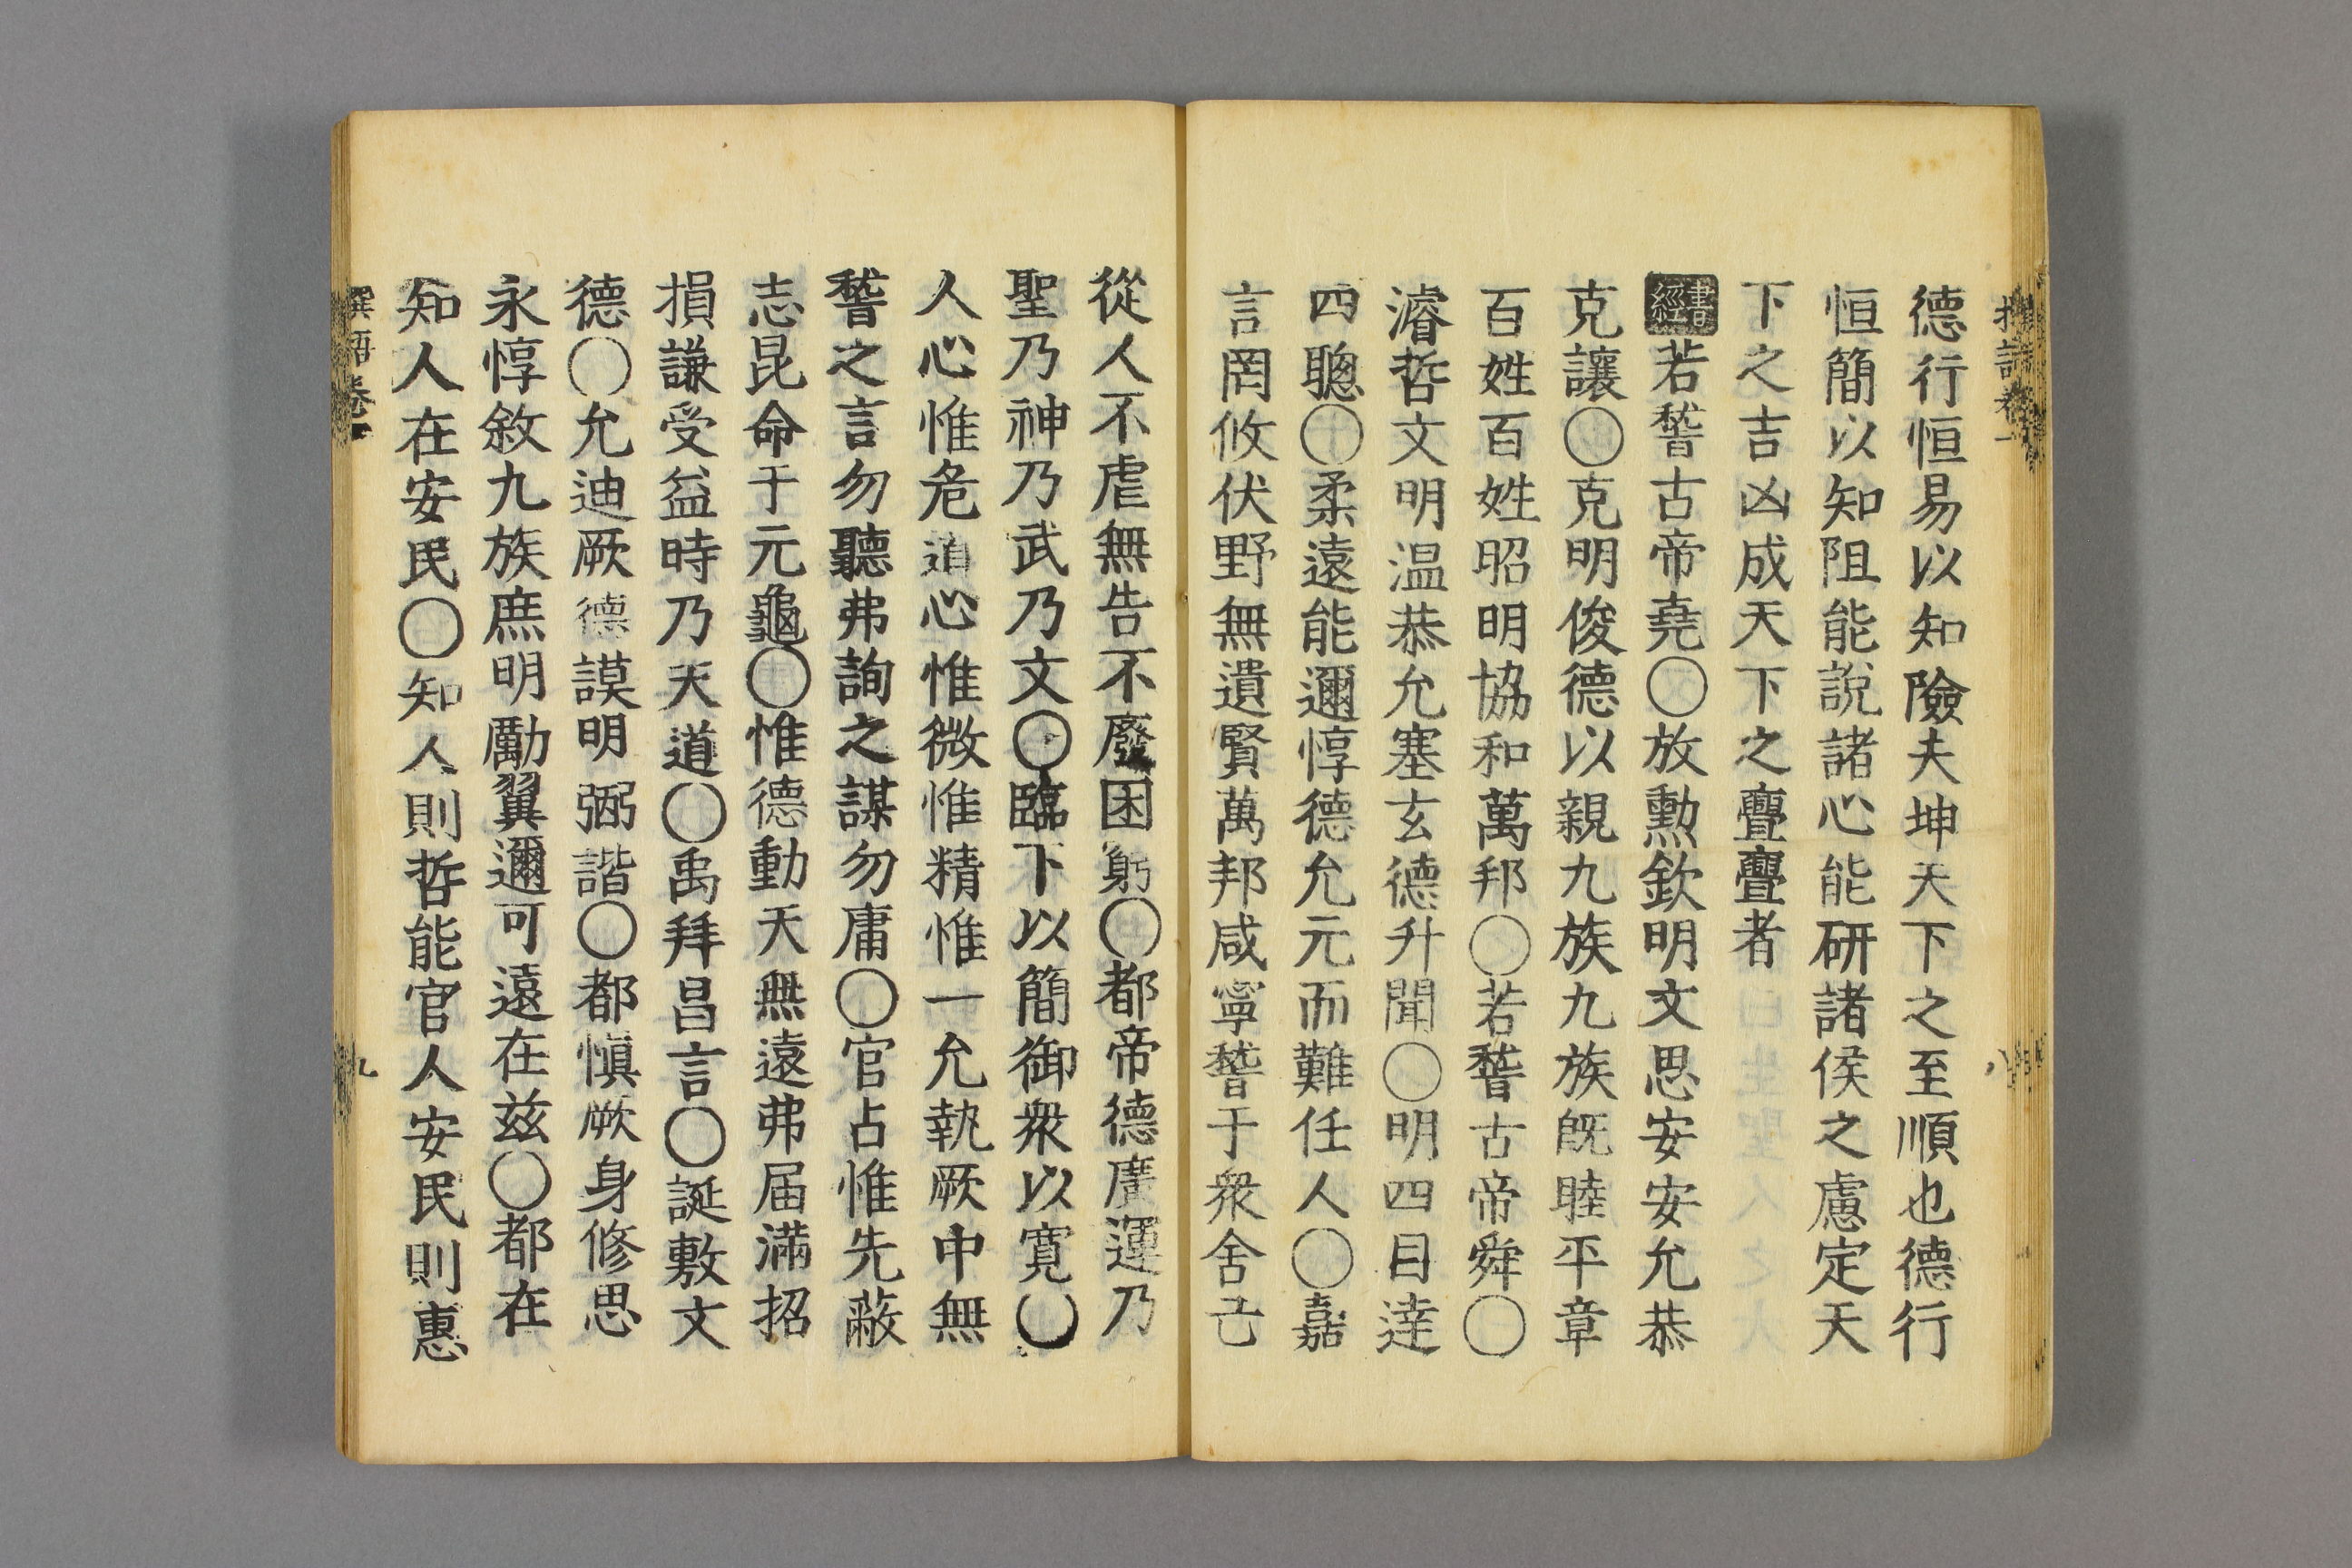 德行恒易以知險夫坤天下之至順也德行
恒簡以知阻能說諸心能研諸侯之慮定天
下之吉凶成天下之亹亹者
書經若稽古帝堯〇放勲欽明文思安安允恭
克讓〇克明俊德以親九族九族旣睦平章
百姓百姓昭明協和萬邦〇若稽古帝舜〇
濬哲文明温恭允塞玄德升聞〇明四目達
四聰〇柔遠能邇惇德允元而難任人〇嘉
言罔攸伏野無遺賢萬邦咸寧稽于衆舍己
從人不虐無告不廢困窮〇都帝德廣運乃
聖乃神乃武乃文〇臨下以簡御衆以寬〇
人心惟危道心惟微惟精惟一允執厥中無
稽之言勿聽弗詢之謀勿庸〇官占惟先蔽
志昆命于元龜〇惟德動天無遠弗届滿招
損謙受益時乃天道〇禹拜昌言〇誕敷文
德〇允迪厥德謨明弼諧〇都愼厥身修思
永惇敘九族庶明勵翼邇可遠在玆〇都在
知人在安民〇知人則哲能官人安民則惠
卷一
八
卷一
九